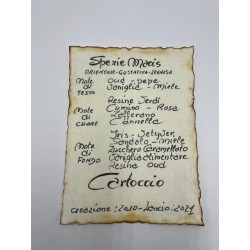 Spezie Macis
ORIENTALE-GUSTATIVA-LEGNOSA
Note di TESTA
Oud - pepe
Vaniglia - Miele
Note di CUORE
Resine Verdi
Cumino - Rosa
Zafferano
Cannella
Note di FONDO
Iris - Vetyver
Sandalo - Miele
Zucchero Caramellato
Vaniglia alimentare
Resina Oud
Cartoccio
creazione: 2020 - Lancio: 2021